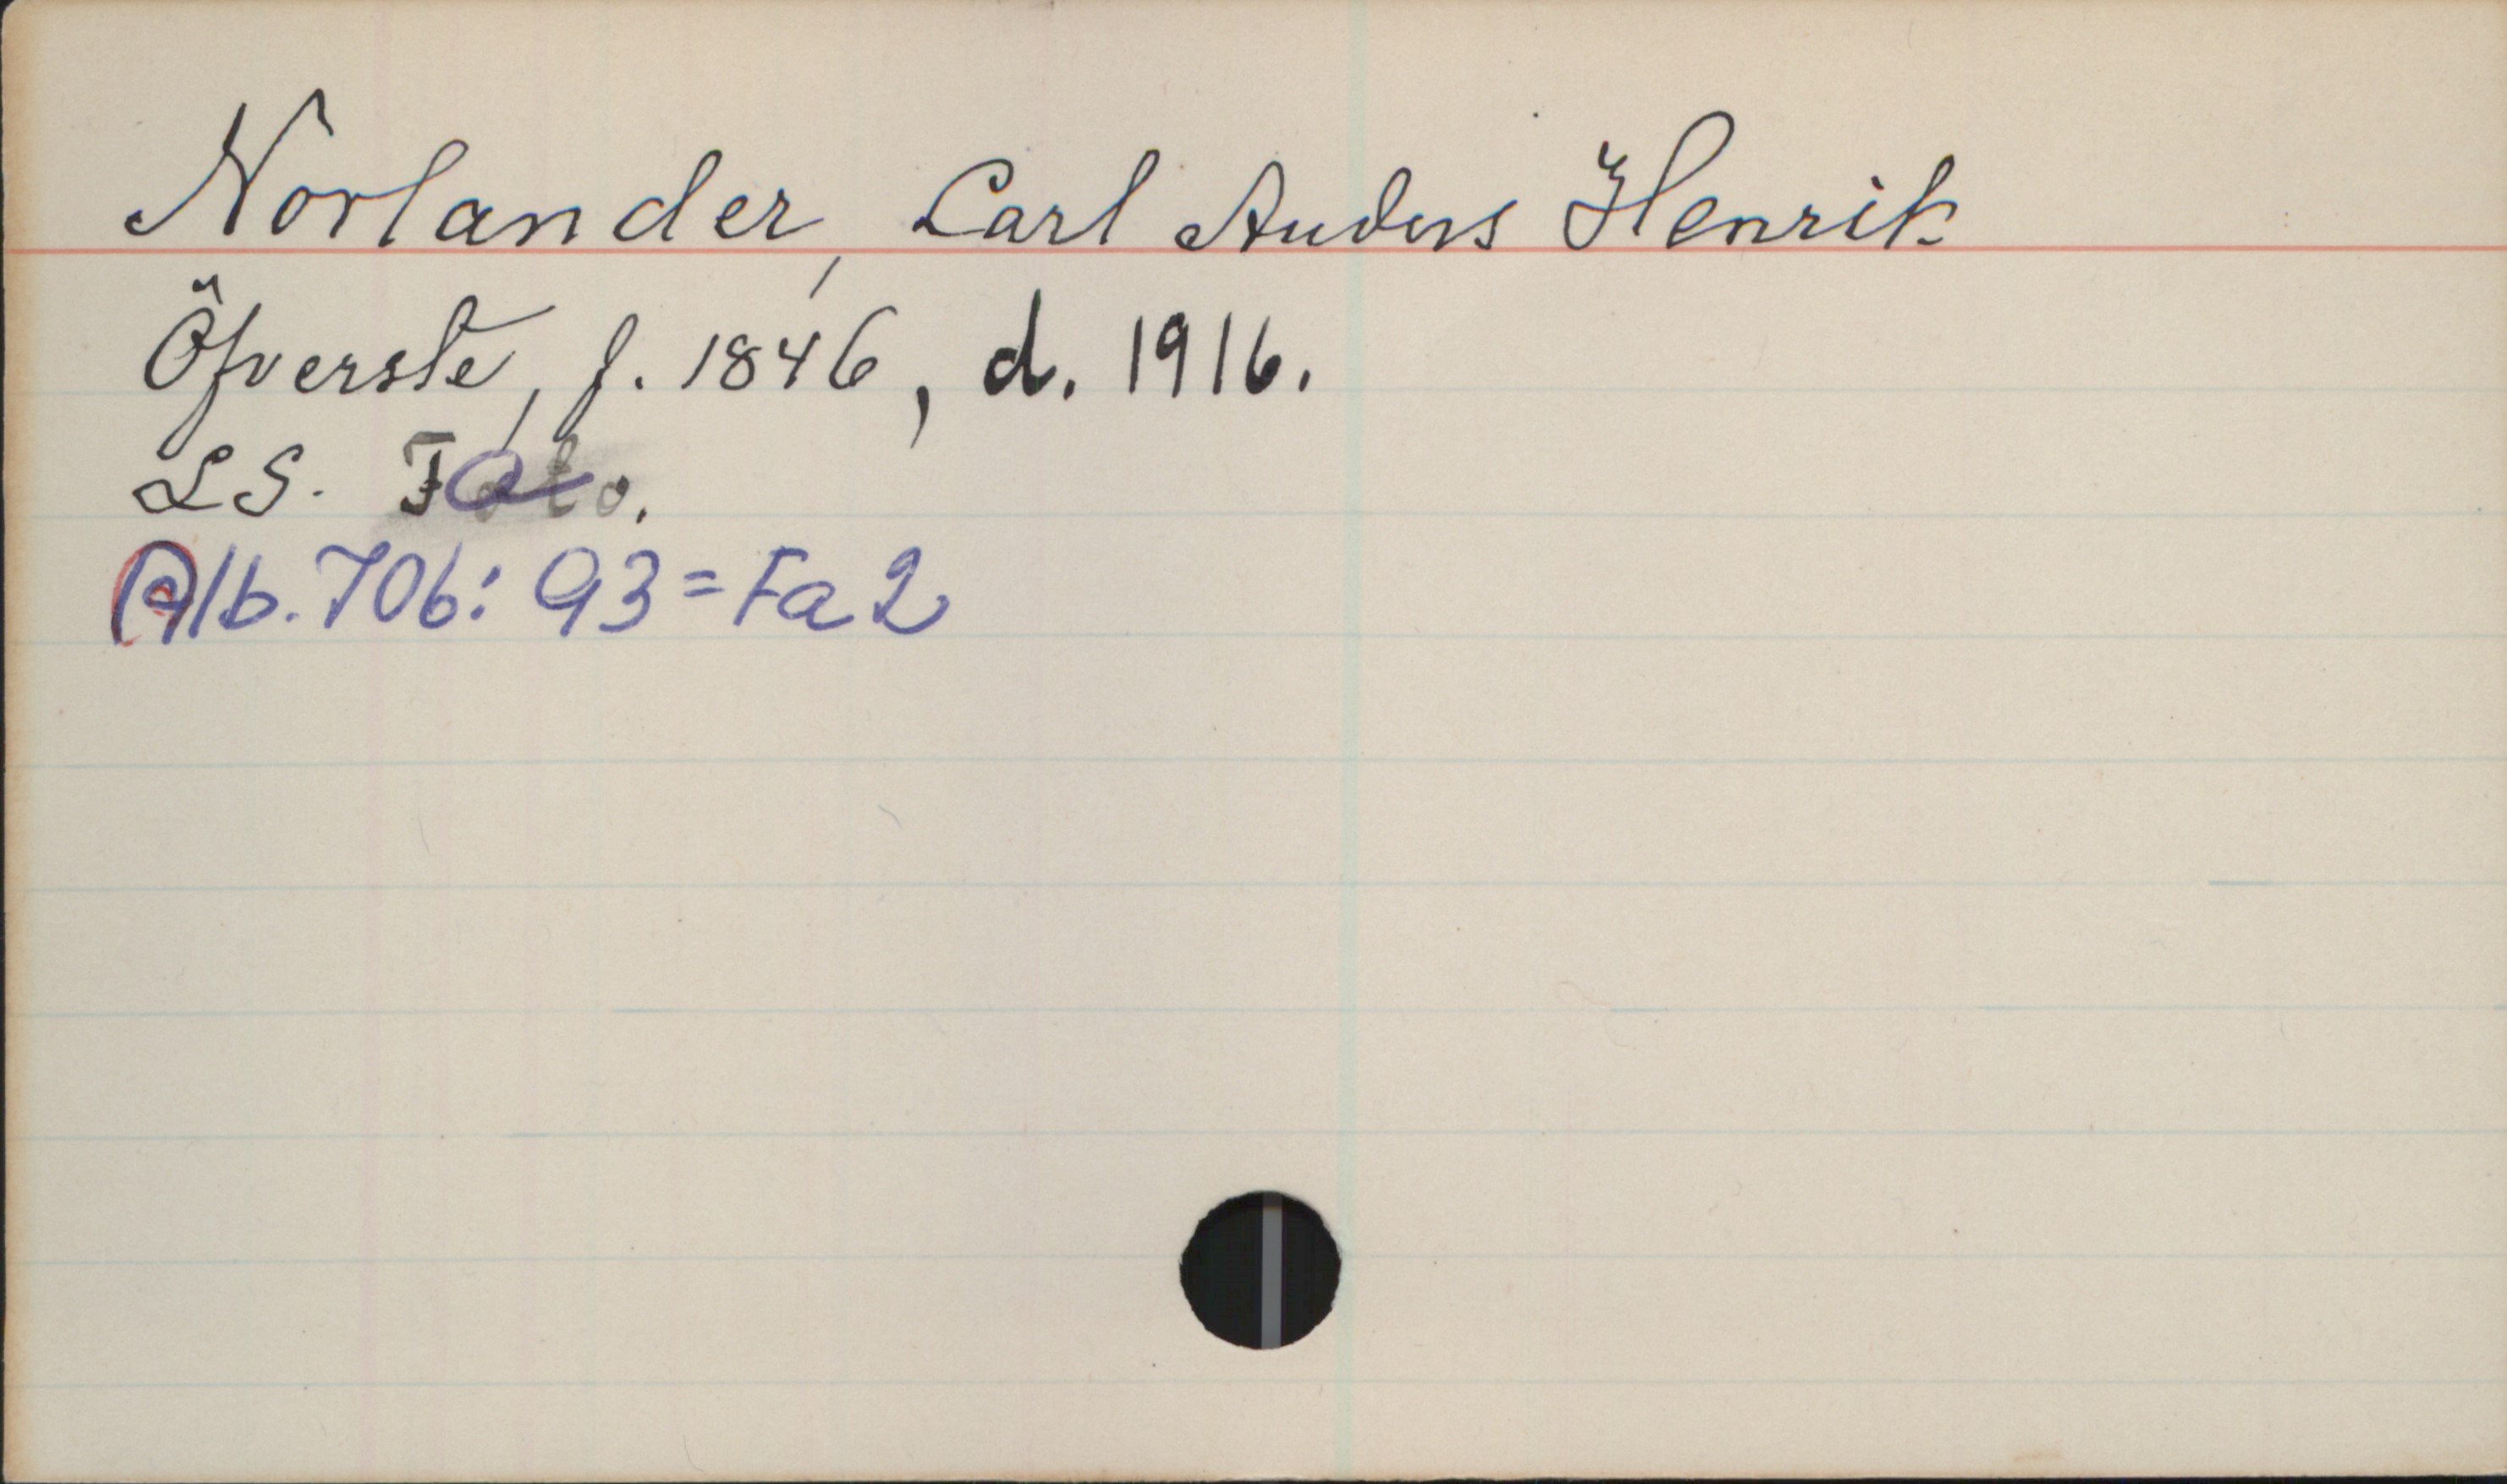 Norlander, Carl Anders Henrik
Öfverste, f. 1846, d. 1916.
LS. Fa
Alb. 706: 93 = Fa 2